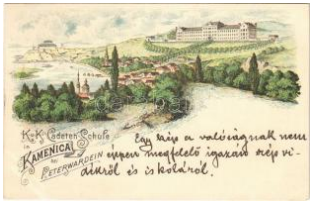 K.u.K. Cadeten-Schule
in
KAMENICA
bei
PETERWARDEIN
Egy kép a valóságnak nem
éppen megfelelő igazán szép vi-
dékről és iskoláról.